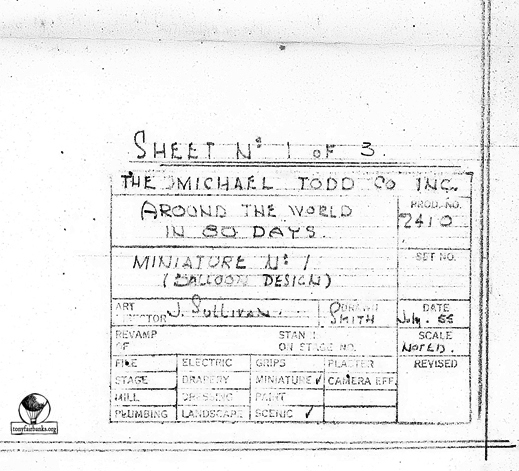 SHEET Nº 1 OF 3.
THE MICHAEL TODD CO INC.
AROUND THE WORLD
IN 80 DAYS.
PROD. NO.
2410
MINIATURE Nº 1
(BALLOON DESIGN)
SET NO.
ART
DIRECTOR J. Sullivan.
DRAWN
SMITH
DATE
July. 55
REVAMP
OF
STAND
ON STAGE NO.
SCALE
NOTED.
FILE ELECTRIC GRIPS PLASTER REVISED
STAGE DRAPERY MINIATURE ✓ CAMERA EFF.
MILL DRESSING PAINT
PLUMBING LANDSCAPE SCENIC ✓
tonyfairbanks.org